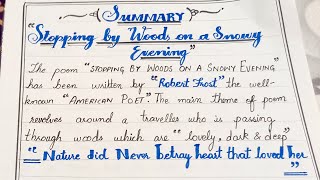 SUMMARY
"Stopping by Woods on a Snowy
Evening"
The poem "STOPPING BY WOODS ON A SNOWY EVENING"
has been written by "Robert Frost" the well-
known "AMERICAN POET". The main theme of poem
revolves around a travelles who is passing
through woods which are "lovely, dark & deep"
"Nature did Never betray heart that loved her"